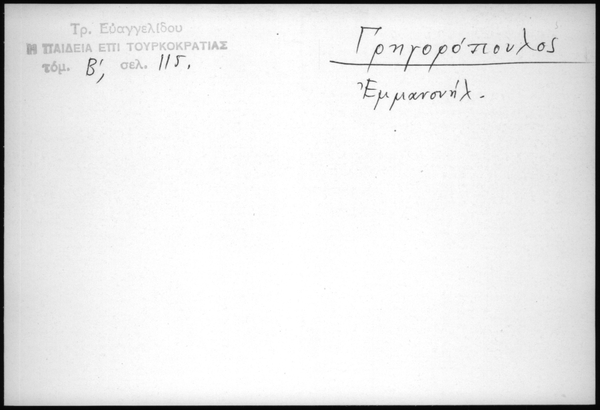 Τρ. Εὐαγγελίδου
Η ΠΑΙΔΕΙΑ ΕΠΙ ΤΟΥΡΚΟΚΡΑΤΙΑΣ
τόμ. Β', σελ. 115.
Γρηγορόπουλος
Ἐμμανουήλ.